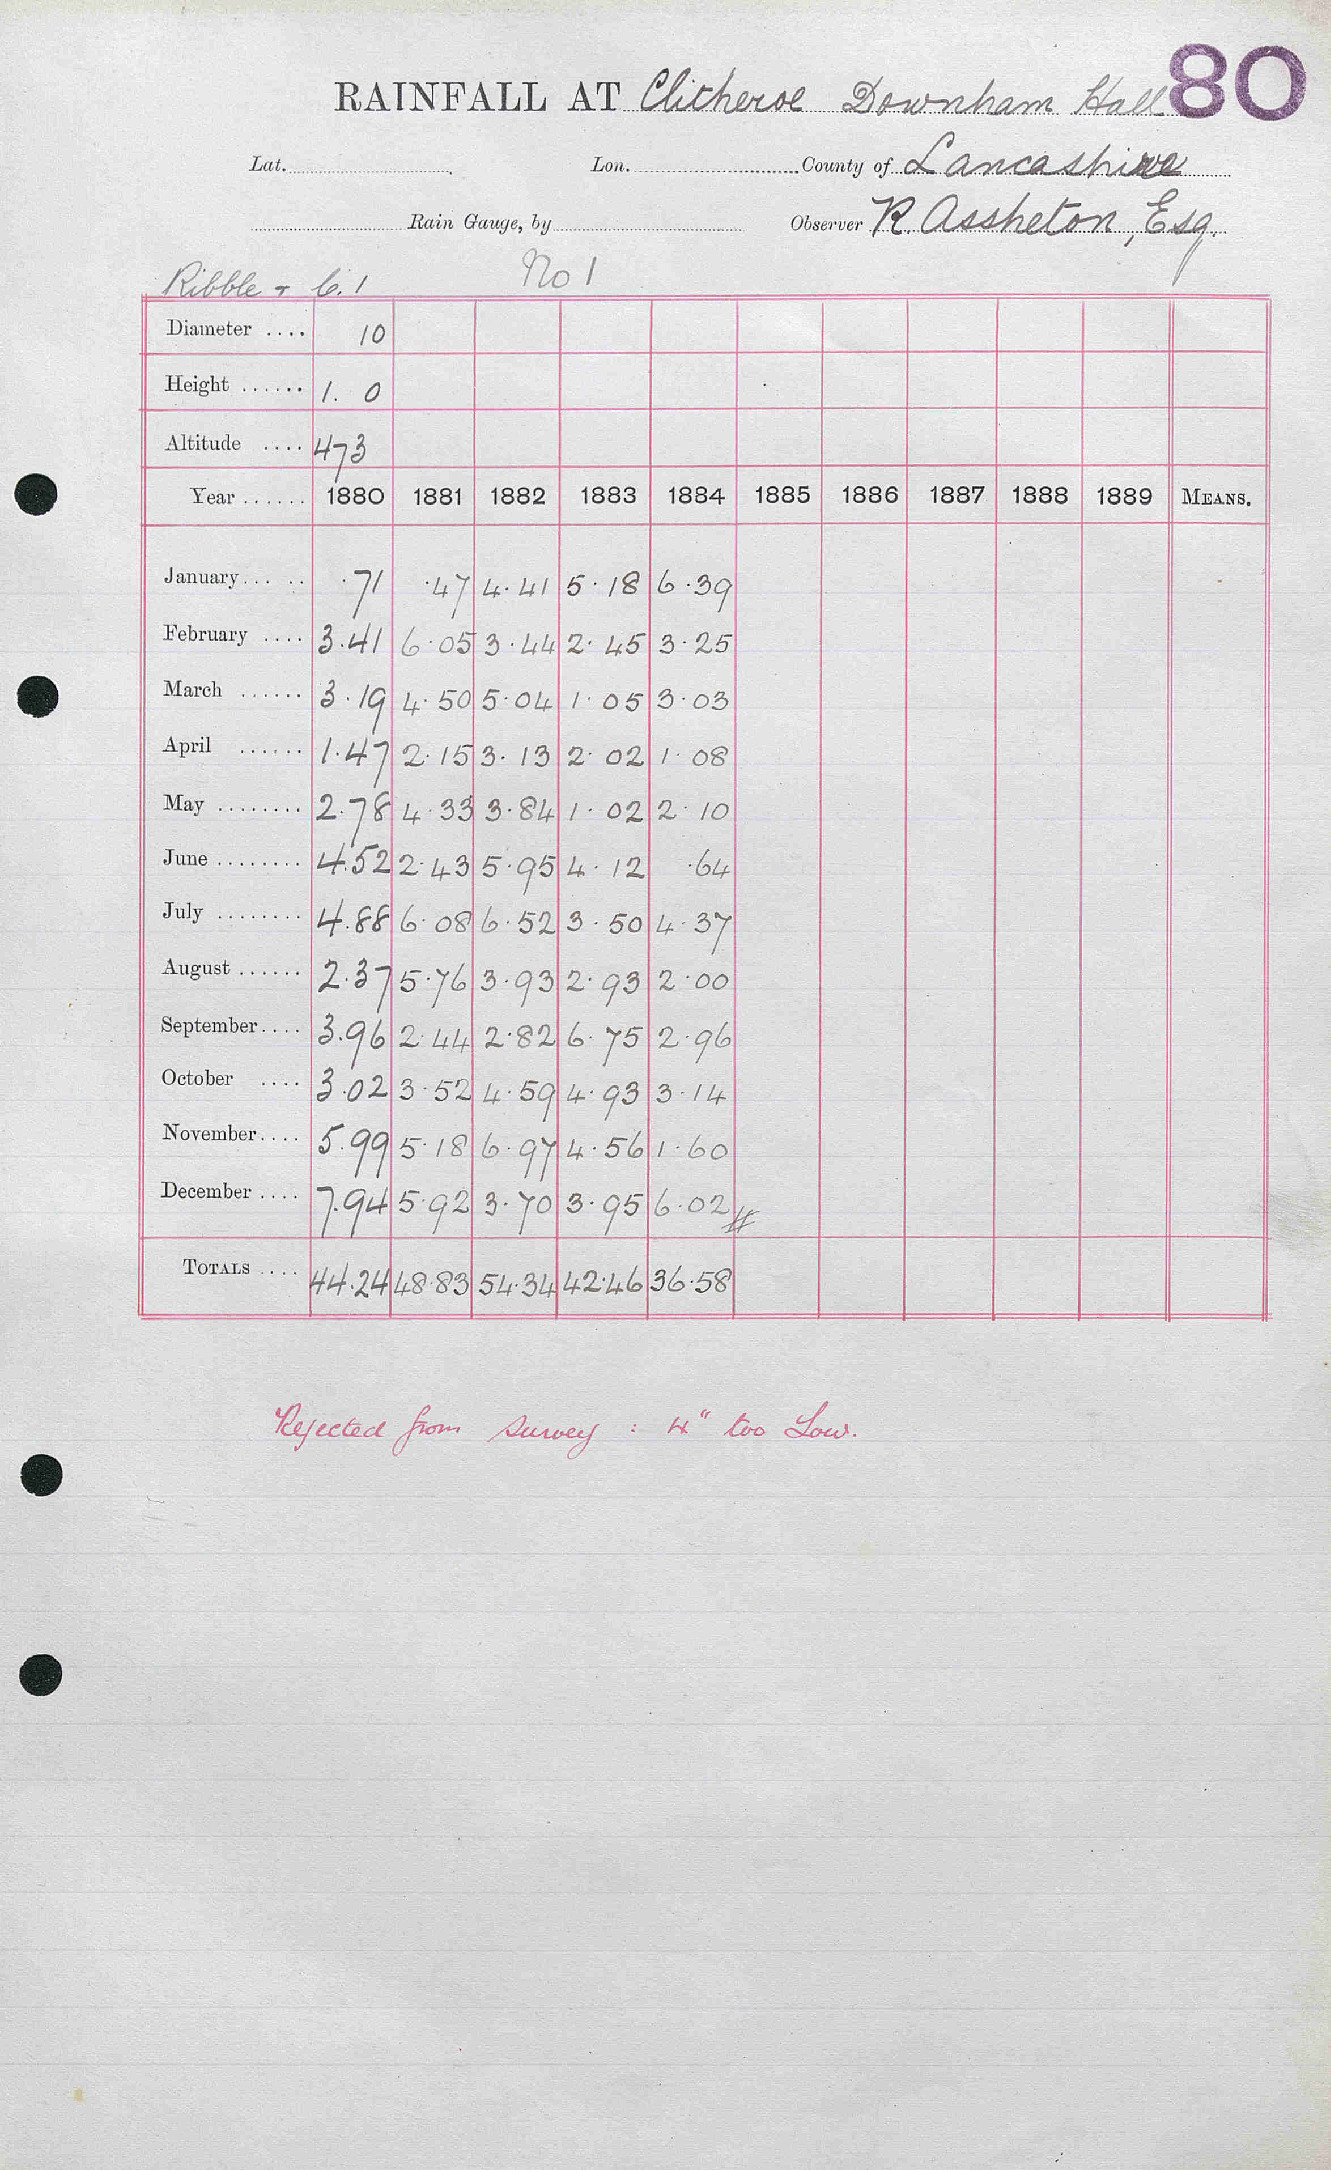 RAINFALL AT Clitheroe Downham Hall 80
Lat. Lon. County of Lancashire
Rain Gauge, by Observer R. Assheton, Esq.
Ribble + 6.1 No 1
Diameter .... 10
Height ...... 1. 0
Altitude .... 473
Year ...... 1880 1881 1882 1883 1884 1885 1886 1887 1888 1889 MEANS.
January... .. .71 .47 4.41 5.18 6.39
February .... 3.41 6.05 3.44 2.45 3.25
March ...... 3.19 4.50 5.04 1.05 3.03
April ...... 1.47 2.15 3.13 2.02 1.08
May ........ 2.78 4.33 3.84 1.02 2.10
June ........ 4.52 2.43 5.95 4.12 .64
July ........ 4.88 6.08 6.52 3.50 4.37
August ...... 2.37 5.76 3.93 2.93 2.00
September.... 3.96 2.44 2.82 6.75 2.96
October .... 3.02 3.52 4.59 4.93 3.14
November.... 5.99 5.18 6.97 4.56 1.60
December .... 7.94 5.92 3.70 3.95 6.02 #
TOTALS .... 44.24 48.83 54.34 42.46 36.58
Rejected from survey : 4" too Low.